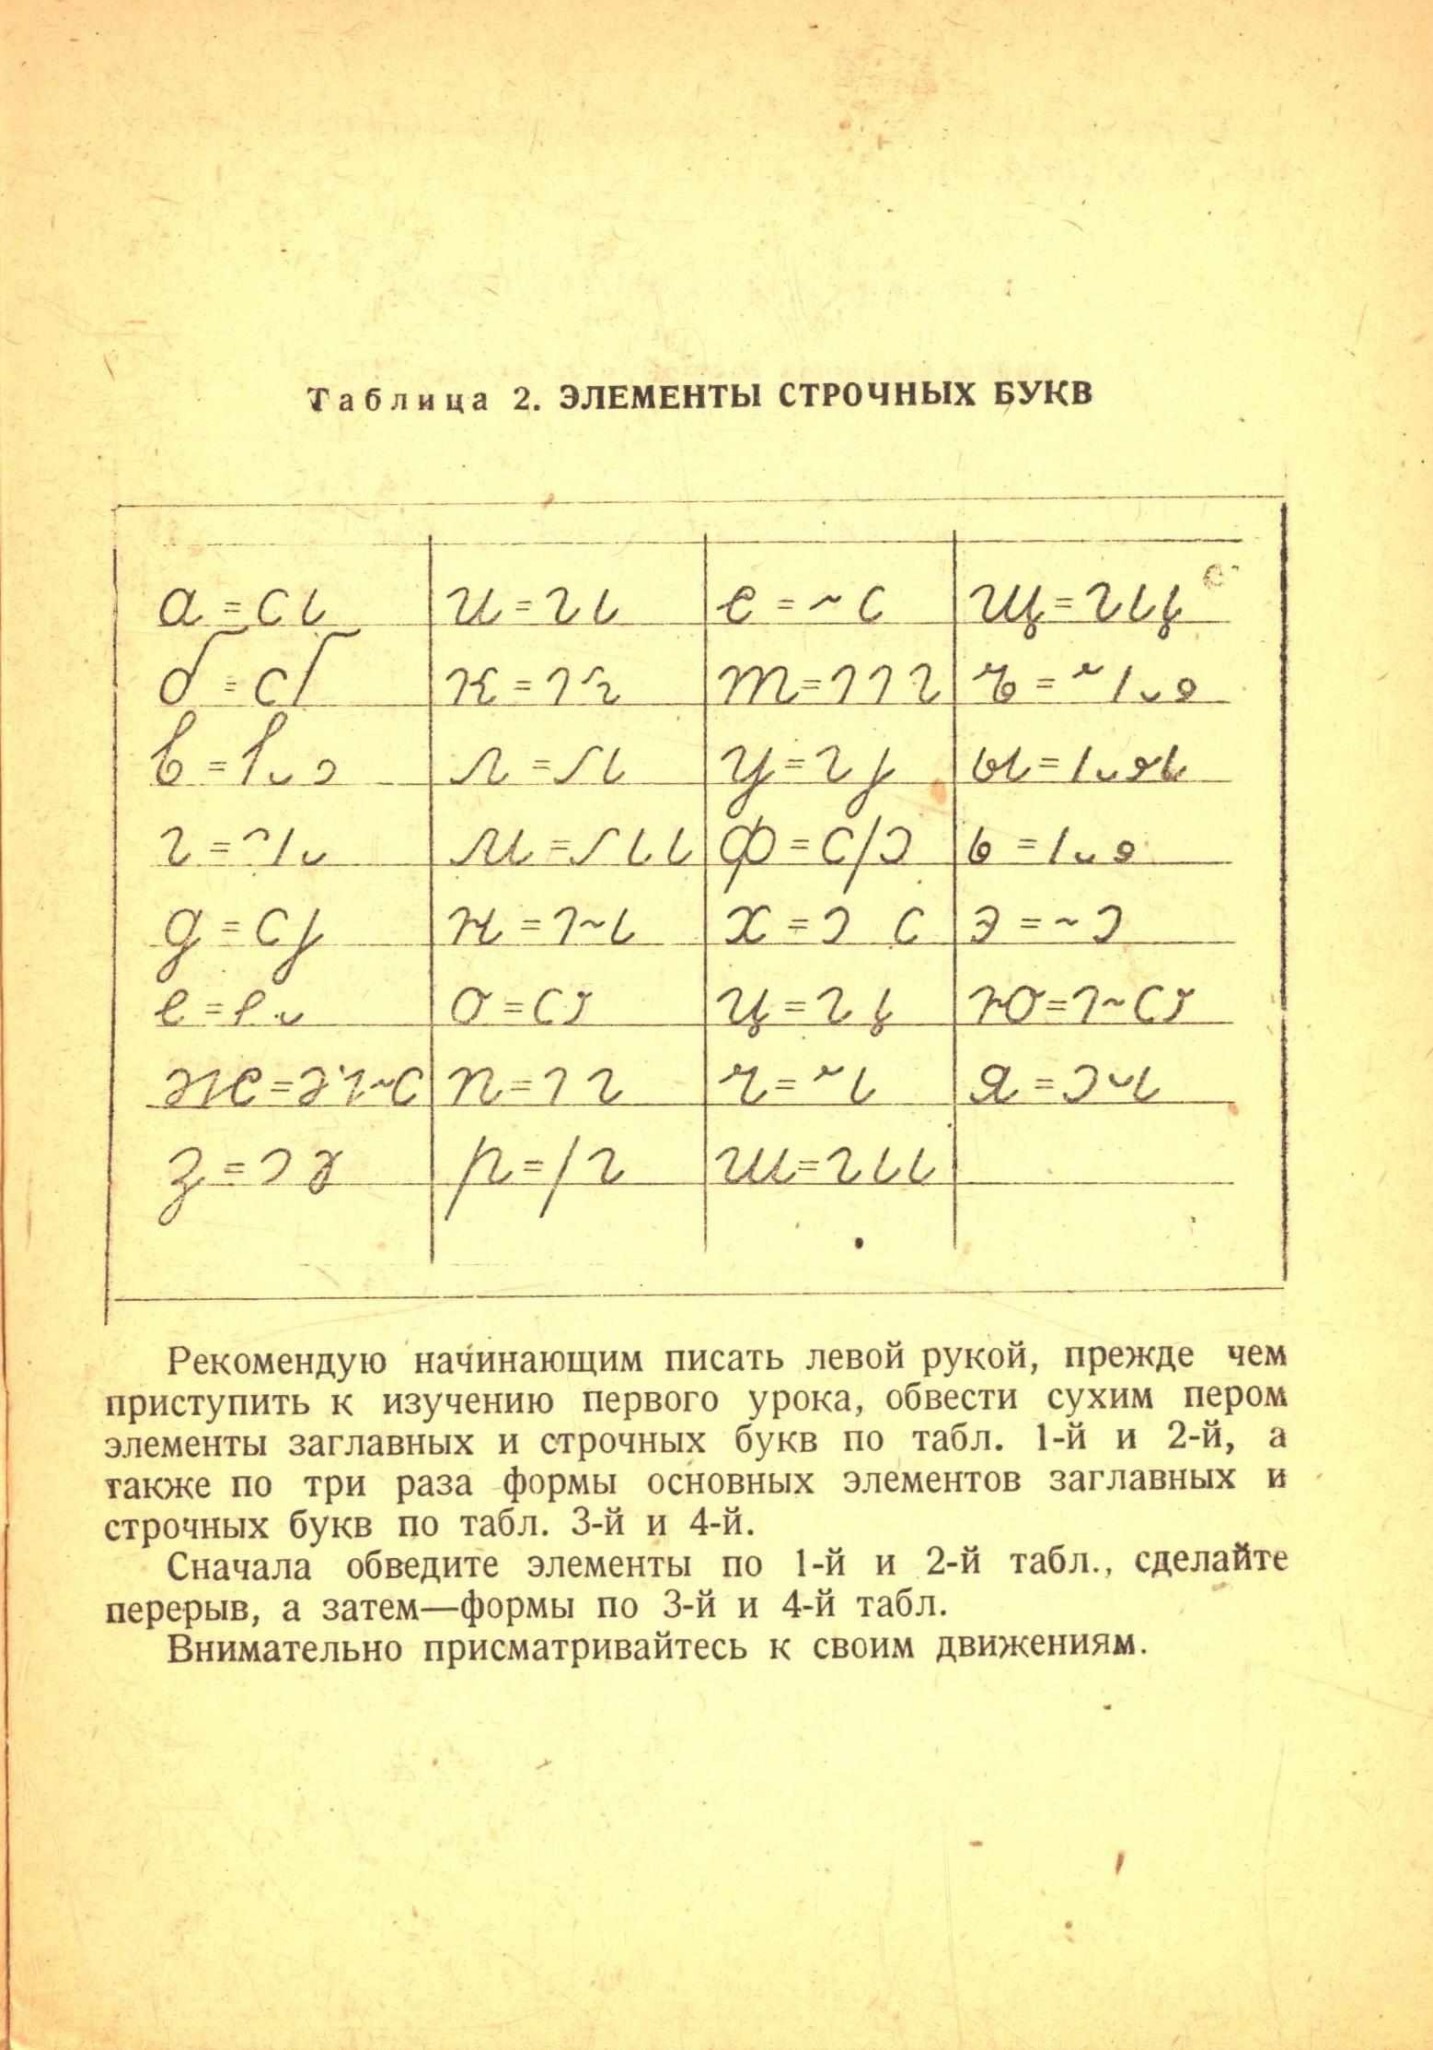 Таблица 2. ЭЛЕМЕНТЫ СТРОЧНЫХ БУКВ
а = с ι | и = ι ι | е = ~ с | щ =
б = с | к = | т = | ъ =
в = | л = | у = | ы =
г = | м = | ф = с / э | ь =
д = с | н = | х = э с | э = ~ э
е = | о = с | ц = | ю =
ж = | п = | ч = | я =
з = | р = | ш =
Рекомендую начинающим писать левой рукой, прежде чем
приступить к изучению первого урока, обвести сухим пером
элементы заглавных и строчных букв по табл. 1-й и 2-й, а
также по три раза формы основных элементов заглавных и
строчных букв по табл. 3-й и 4-й.
Сначала обведите элементы по 1-й и 2-й табл., сделайте
перерыв, а затем—формы по 3-й и 4-й табл.
Внимательно присматривайтесь к своим движениям.